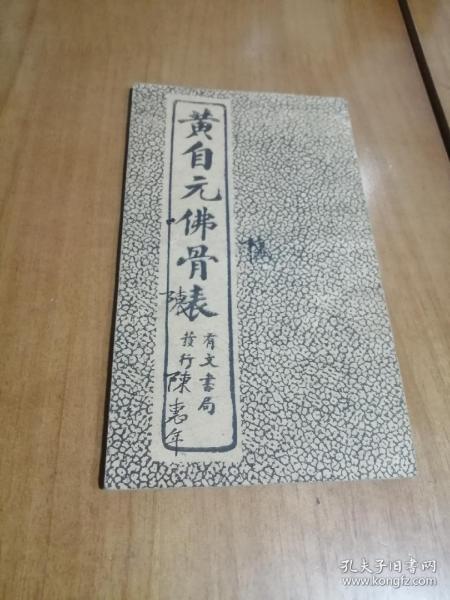 黄自元佛骨表
有文書局
發行
陳
陳惠年
孔夫子旧书网
www.kongfz.com